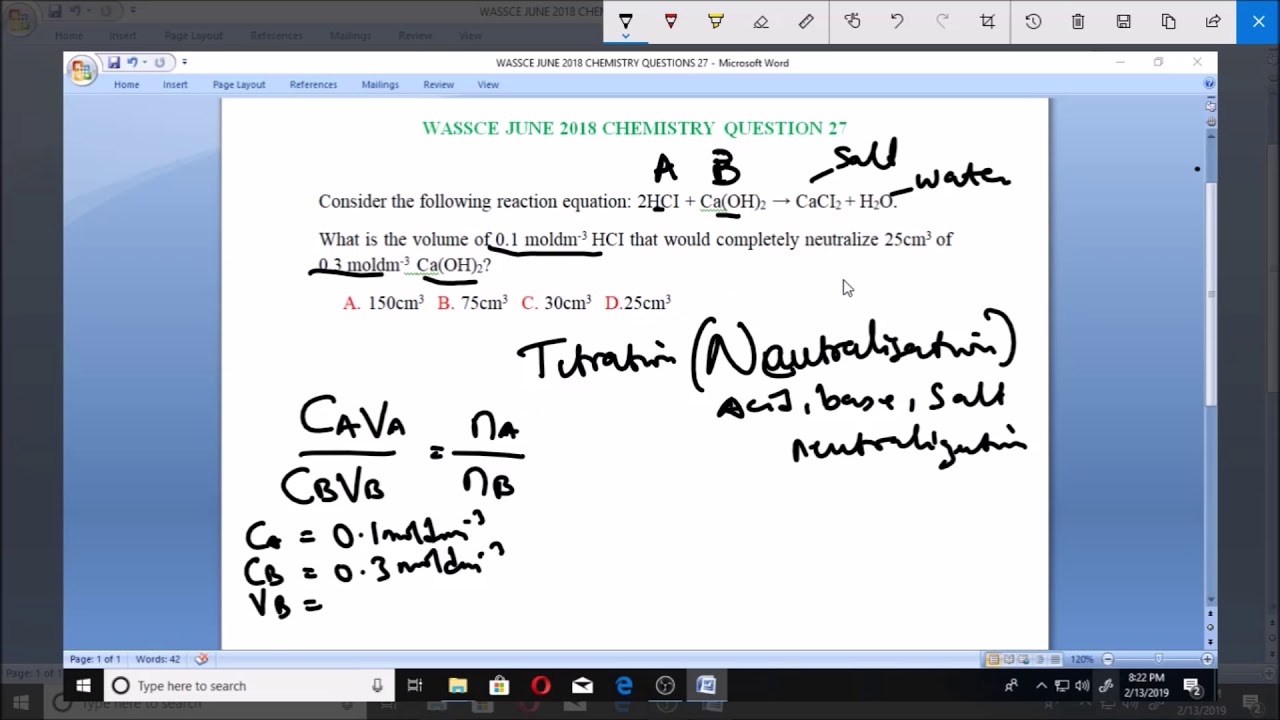 WASSCE JUNE 2018 CHEM
Home Insert Page Layout References Mailings Review View
WASSCE JUNE 2018 CHEMISTRY QUESTIONS 27 - Microsoft Word
Home Insert Page Layout References Mailings Review View
WASSCE JUNE 2018 CHEMISTRY QUESTION 27
A B salt
water
Consider the following reaction equation: 2HCI + Ca(OH)₂ → CaCI₂ + H₂O.
What is the volume of 0.1 moldm⁻³ HCI that would completely neutralize 25cm³ of
0.3 moldm⁻³ Ca(OH)₂?
A. 150cm³ B. 75cm³ C. 30cm³ D.25cm³
Titration (Neautralisation)
Acid, base, Salt
neutralization
CAVA = nA
CBVB nB
CA = 0.1moldm⁻³
CB = 0.3moldm⁻³
VB =
Page: 1 of 1 Words: 42 120%
Page: 1 of 1
Type here to search
8:22 PM
2/13/2019
2
Type here to search
2/13/2019